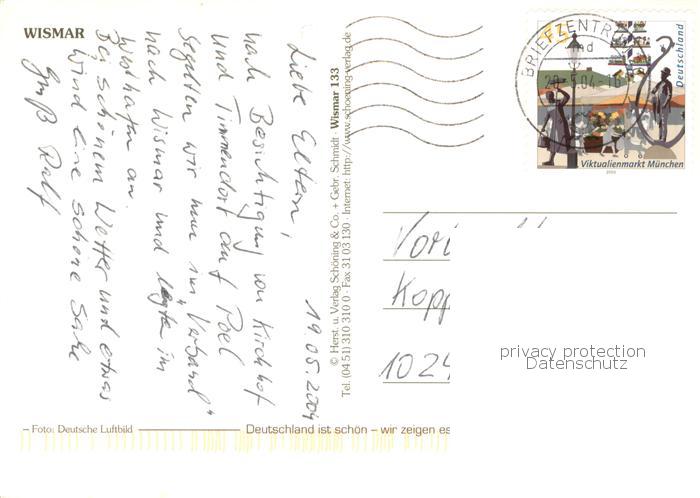 WISMAR
19.05.2004
Liebe Eltern,
nach Besichtigung von Kirchhof
und Timmendorf auf Poel
segelten wir nun im "Verband"
nach Wismar und legten im
Westhafen an.
Bei schönem Wetter und etwas
Wind eine schöne Sache
Gruß Ralf
© Herst. u. Verlag Schöning & Co. + Gebr. Schmidt · Wismar 133
Tel. (04 51) 310 310 0 · Fax 31 03 130 · Internet: http://www.schoening-verlag.de
BRIEFZENTRUM
Deutschland
Viktualienmarkt München
2003
Kopp
1024
privacy protection
Datenschutz
Foto: Deutsche Luftbild
Deutschland ist schön – wir zeigen es